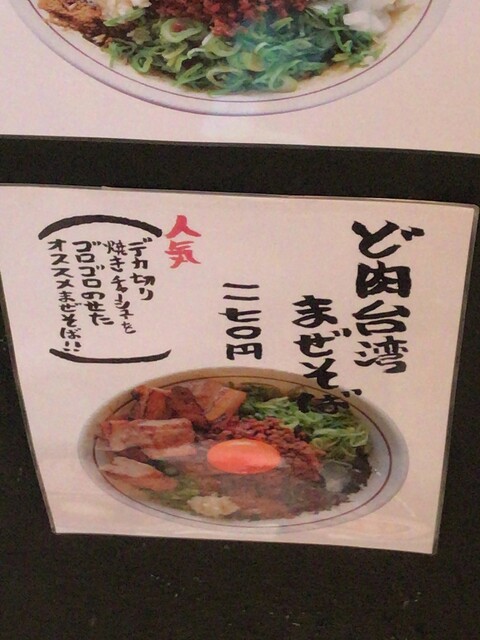 ど肉台湾
まぜそば
一一七〇円
人気
デカ切り
焼きチャーシューを
ゴロゴロのせた
オススメまぜそば!!